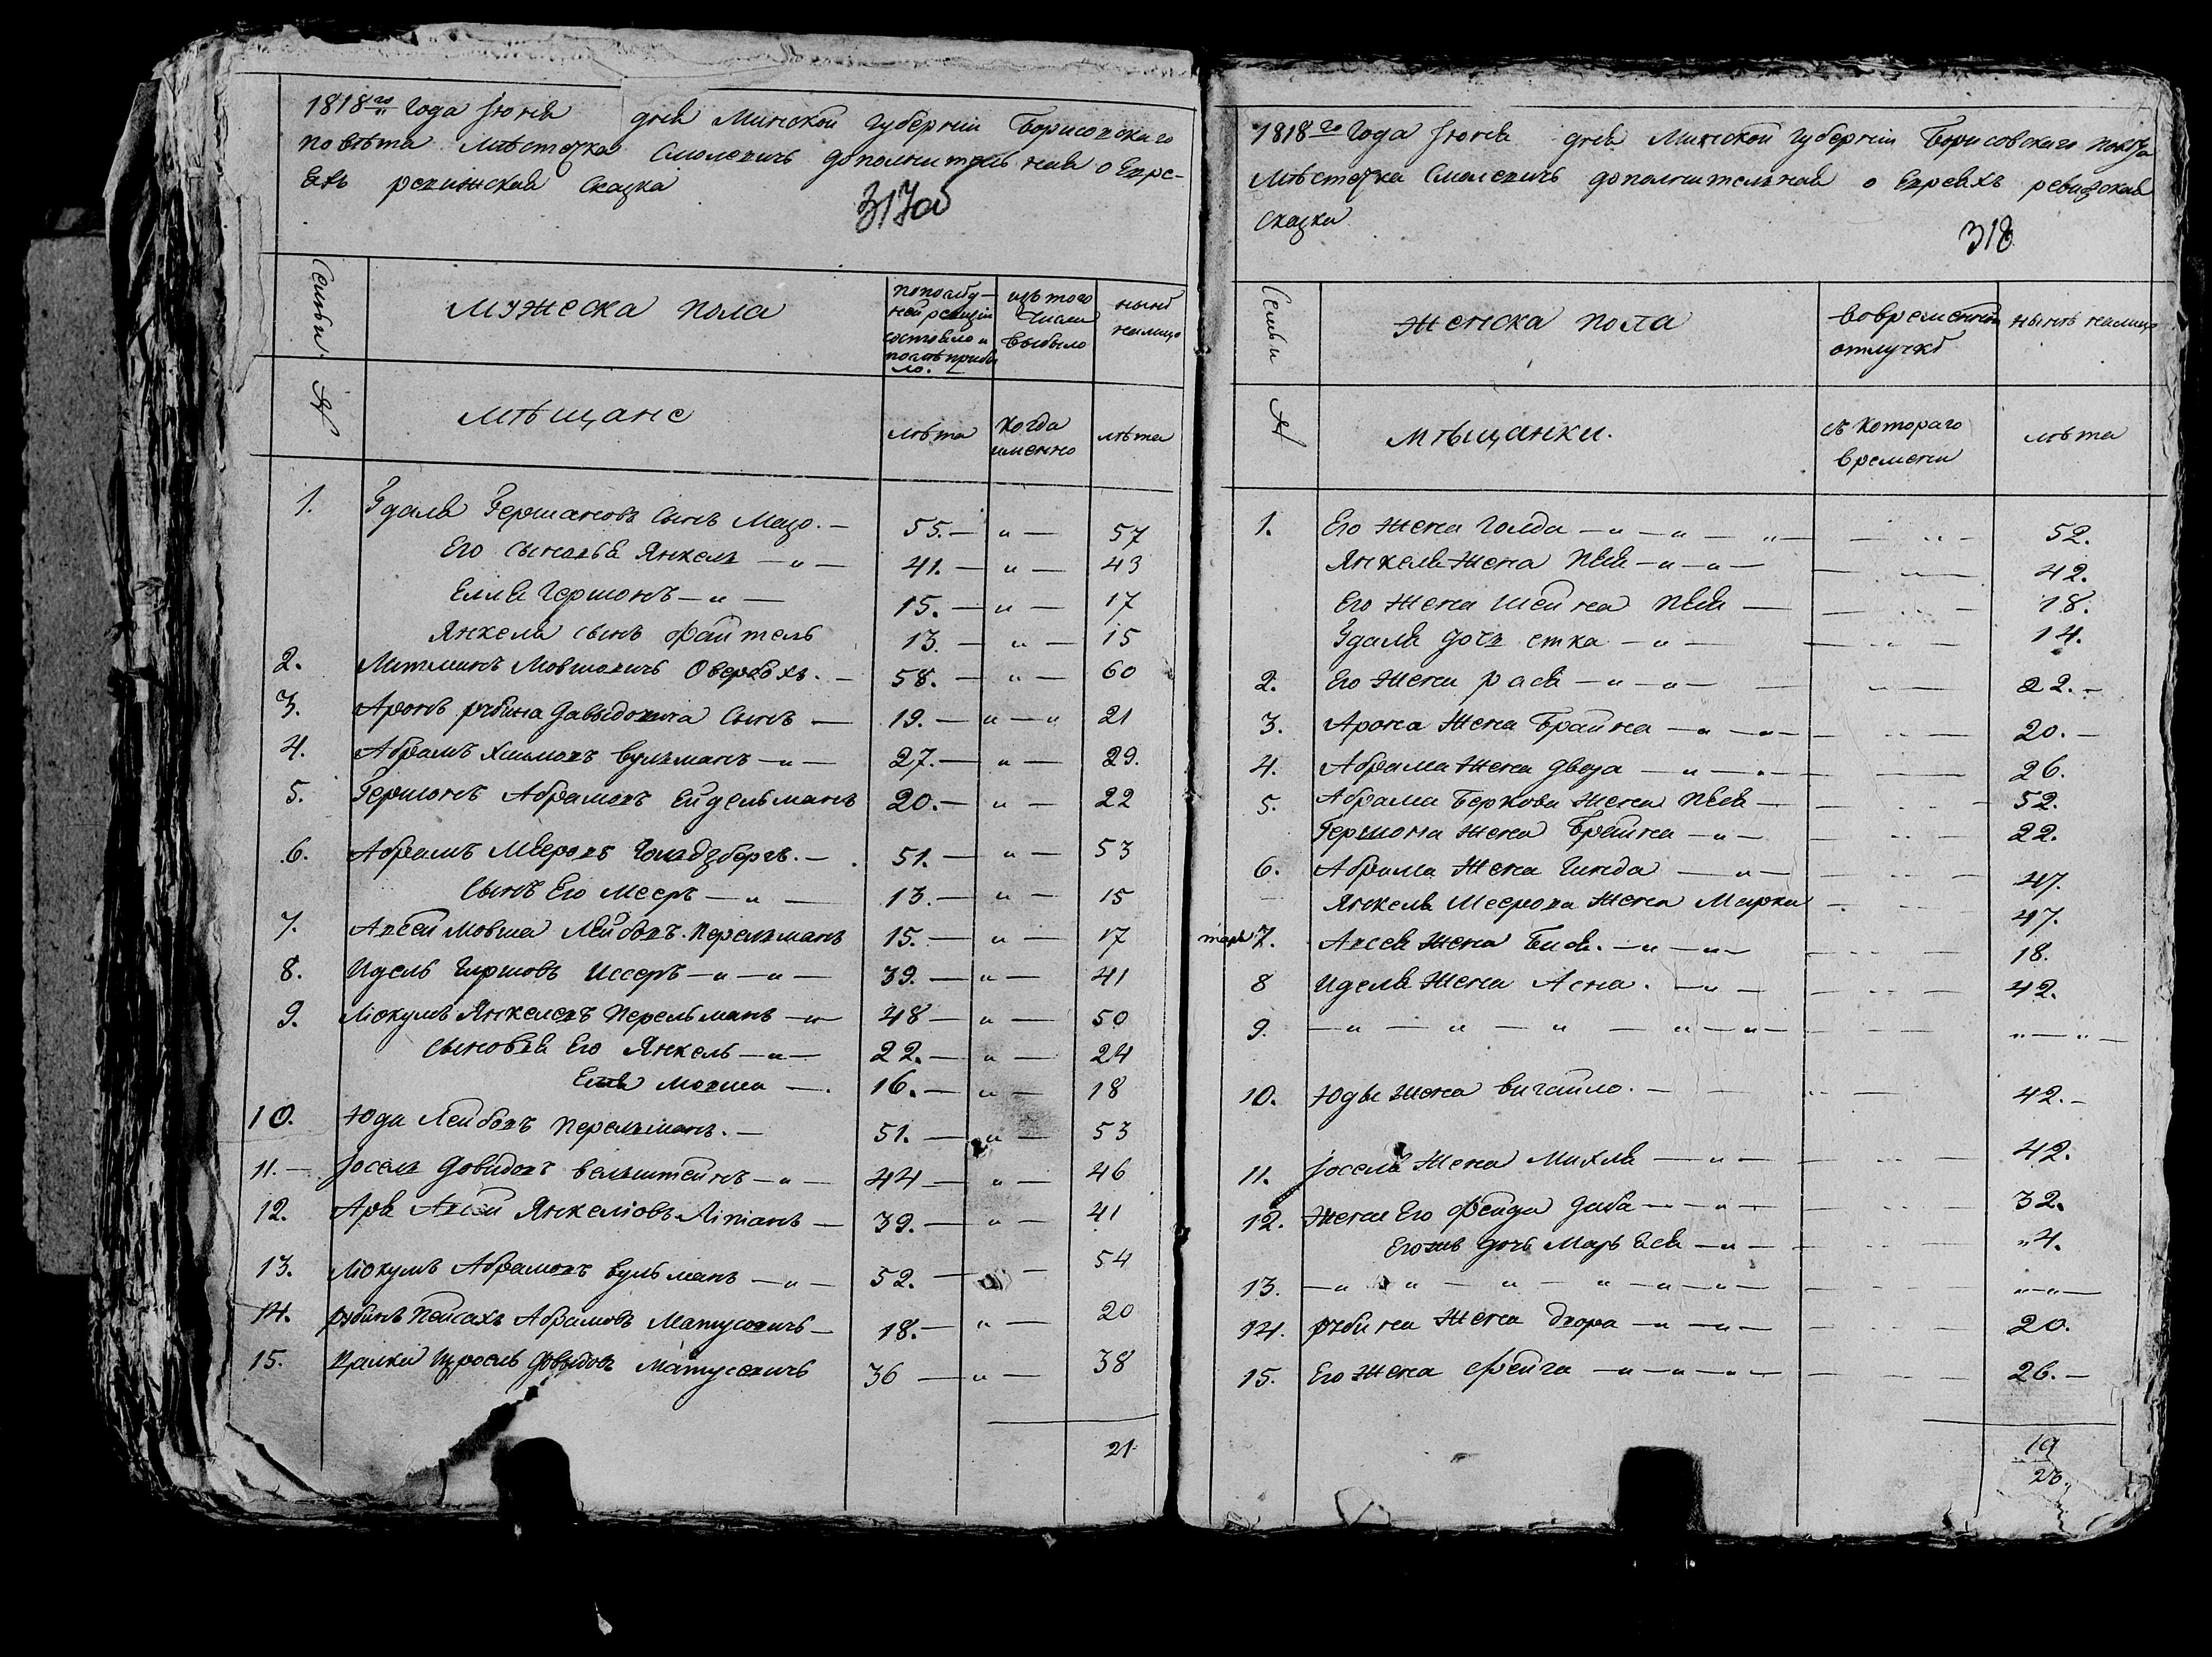 1818го Года Іюня дня Минской Губерніи Борисовскаго
повѣта Мѣстечка Смолевичъ дополнительная о Евре-
яхъ ревижская Сказка
317об
Семьи
Мужеска пола
по послѣд-
ней ревизіи
состояло и
послѣ прибы
ло.
изъ того
числа
выбыло
нынѣ
налицо
№
Мѣщане
лѣта
когда
именно
лѣта
1. Гдаля Гершановъ Сынъ Мазо. — 55. — „ — 57
Его сыновья Янкель — „ — 41. — „ — 43
Еліа Гершонъ — „ — 15. — „ — 17
Янкеля сынъ Файтель 13. — „ — 15
2. Мовшовичъ — 58. — „ — 60
3. Аронъ рубина Давыдовича Сынъ — 19. — „ — „ 21
4. Абрамъ Хаимовъ Вульманъ — „ — 27. — „ — 29.
5. Гершонъ Абрамовъ Ейдельманъ 20. — „ — 22
6. Абрамъ Мееровъ Гольдзбергъ. — 51. — „ — 53
Сынъ Его Мееръ — „ — 13. — „ — 15
7. Мовша Лейбовъ Перельманъ 15. — „ — 17
8. Идель Гиршовъ Иссеръ — „ — „ — 39. — „ — 41
9. Янкелевъ Перельманъ — „ 48 — „ — 50
сыновья Его Янкель — „ — 22. — „ — 24
Еліа Мовша — 16. — „ — 18
10. Юда Лейбовъ Перельманъ. — 51. — „ — 53
11. — Іосель Довидовъ Вельштейнъ — „ — 44 — „ — 46
12. Янкеліовъ — 39. — „ — 41
13. Абрамовъ Вульманъ — „ — 52. — — 54
14. рубинъ Пейсахъ Абрамовъ Матусевичъ — 18. — „ — 20
15. Израель Довыдовъ Матусевичъ 36 — „ — 38
21
1818го Года Іюня дня Минской Губерніи Борисовскаго повѣта
Мѣстечка Смолевичъ дополнительная о Евреяхъ ревизская
Сказка
318
Семьи
Женска пола
во временной
отлучкѣ
нынѣ налицо
№
Мѣщанки.
съ котораго
времени
лѣта
1. Его жена Голда — „ — „ — „ — 52.
Янкеля жена Песя — „ — „ — 42.
Его жена Шейна Песя — 18.
Гдаля дочь етка — „ — 14.
2. Его жена рася — „ — „ — 22. —
3. Арона жена Брайна — „ — „ — 20. —
4. Абрама жена Двера — „ — „ — 26.
5. Абрама Беркова жена Песя — 52.
Гершона жена Брайна — „ — 22.
6. Абрама жена Гинда — „ — 47.
Янкеля Меерова жена Марка 47.
7. жена Бися. — „ — „ — 18.
8 Иделя жена Асна. — „ — 42.
9. — „ — „ — „ — „ — „ — „ — „ —
10. Юды жена Вигайло. — 42. —
11. Іоселя жена Михля — „ — 42.
12. Жена Его Фейга — „ — 32.
Егожъ дочь — „ — „ 4.
13. — „ — „ — „ — „ — „ — „ — „ — „ —
14. рубина жена Двора — „ — „ — 20.
15. Его жена Фейга — „ — „ — „ — 26. —
19